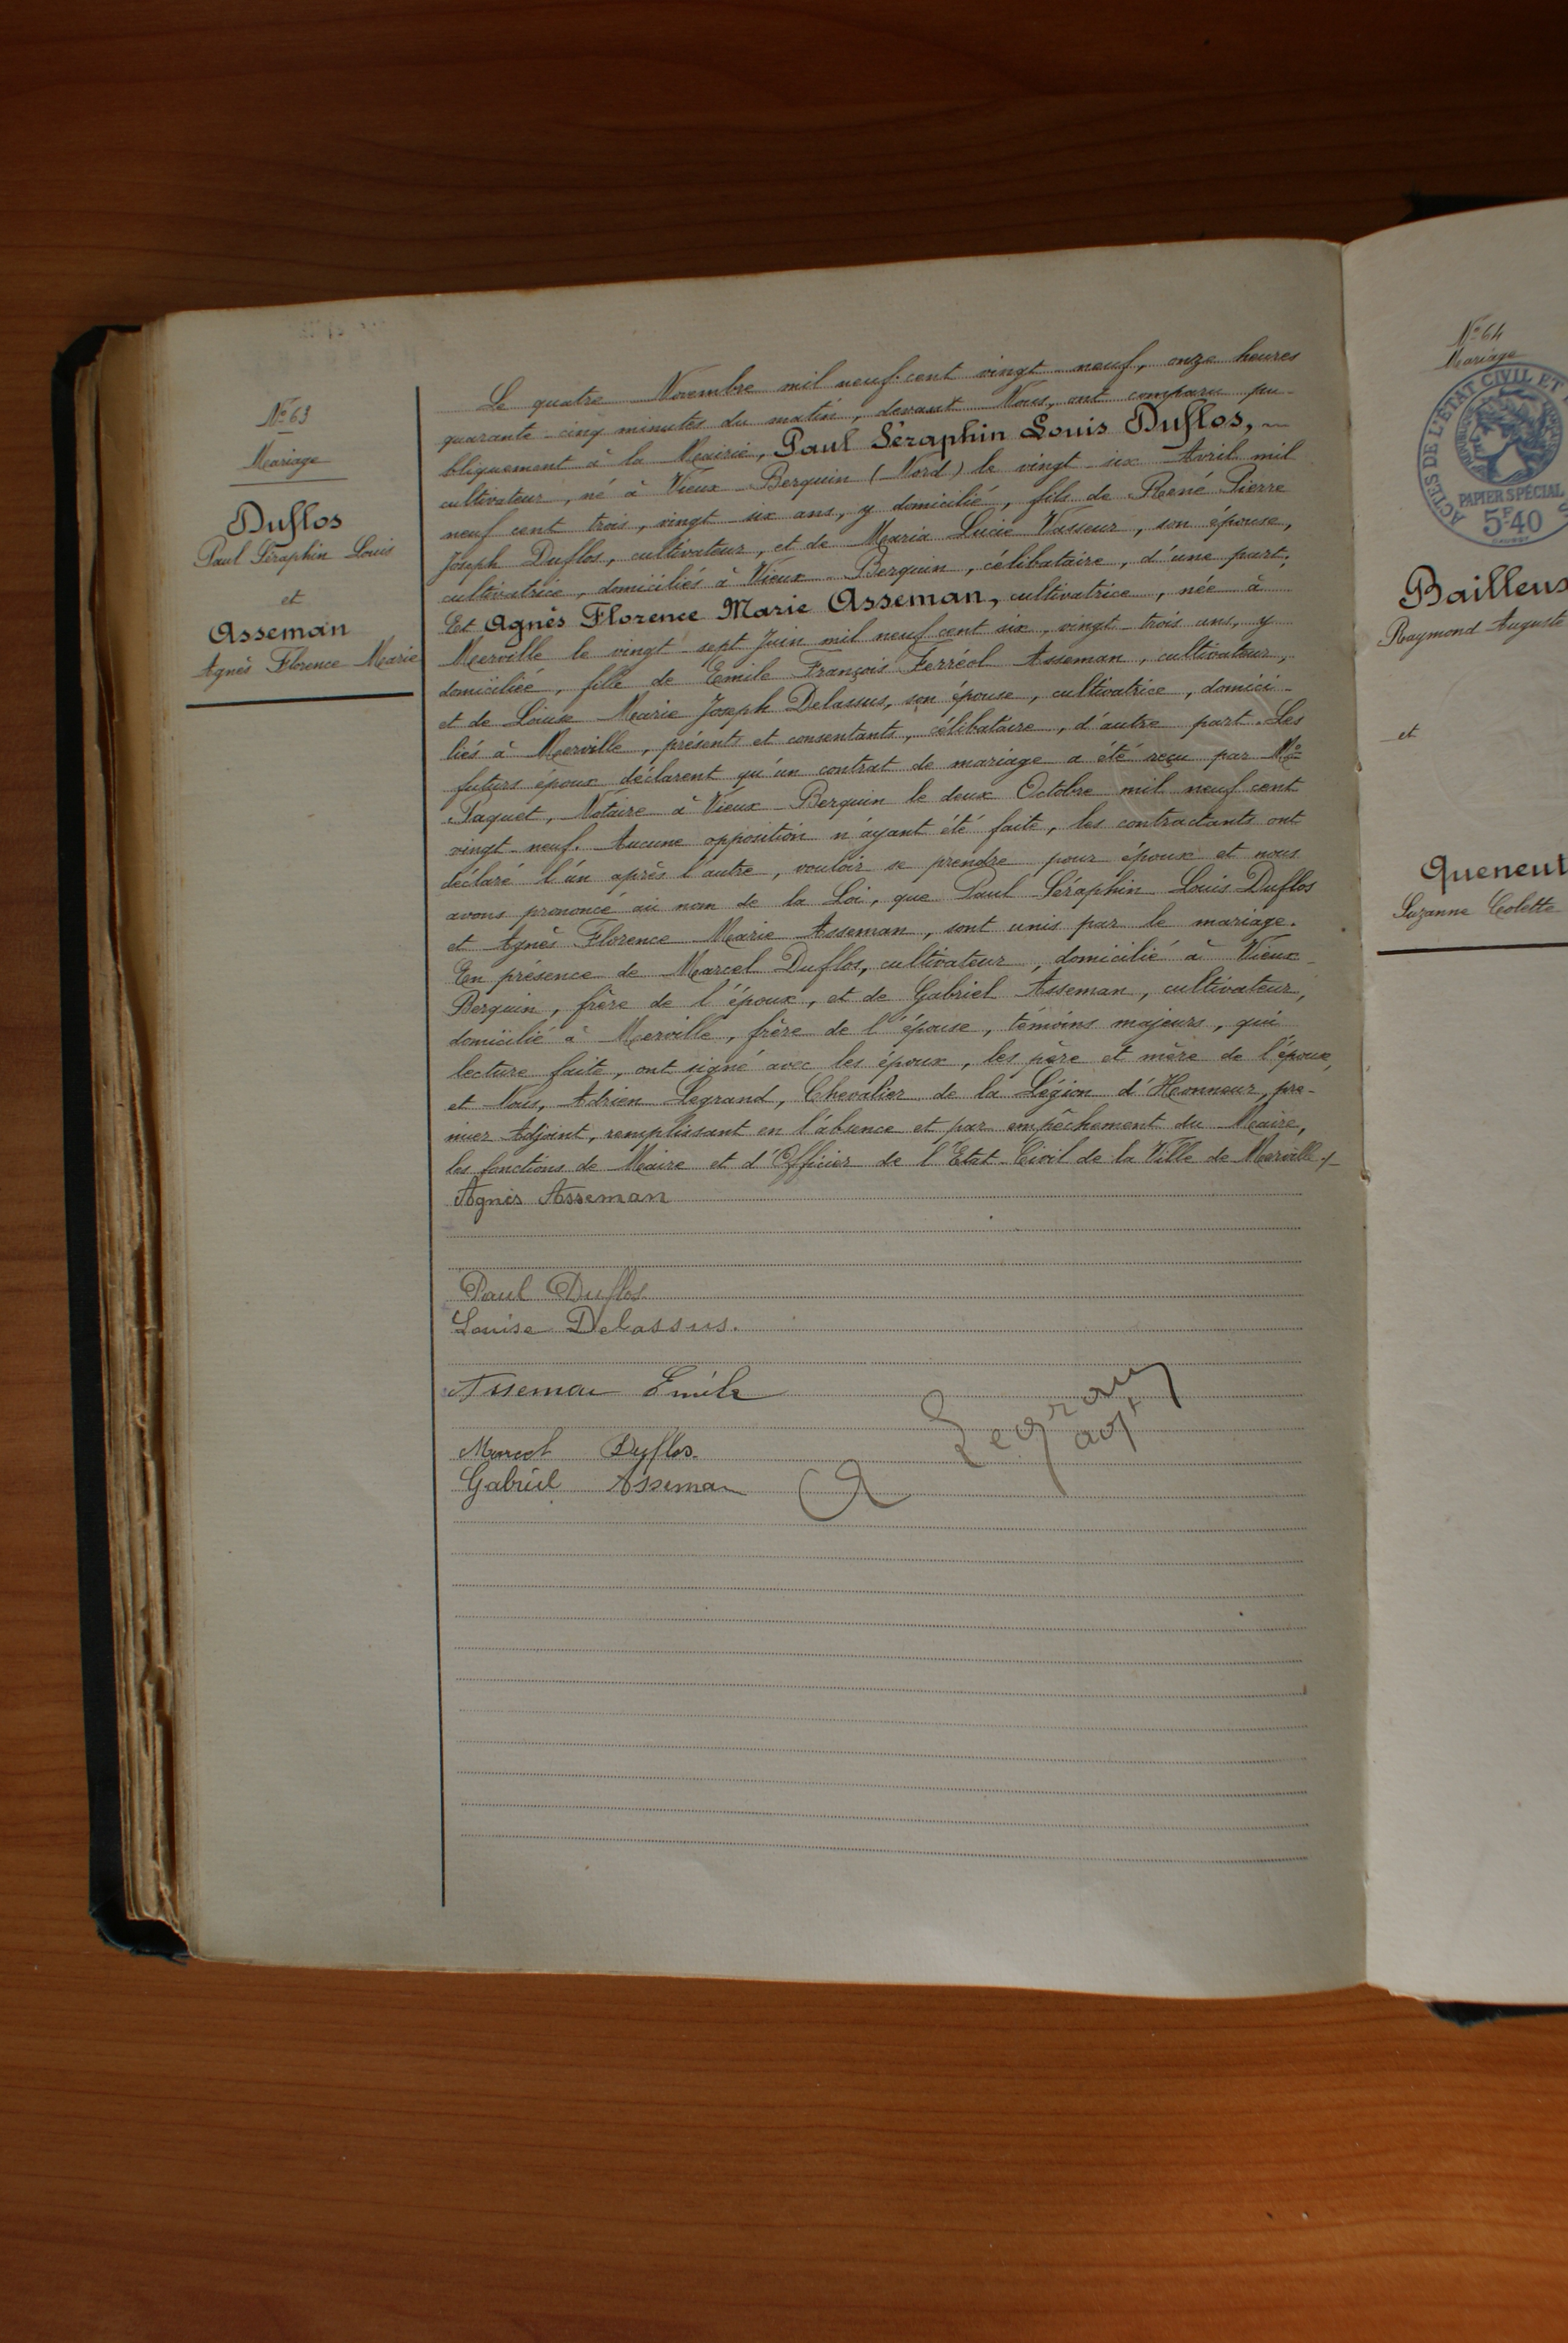 N° 63
Mariage
Duflos
Paul Séraphin Louis
et
Asseman
Agnès Florence Marie
Le quatre Novembre mil neuf cent vingt-neuf, onze heures
quarante-cinq minutes du matin, devant Nous, ont comparu pu-
bliquement à la Mairie, Paul Séraphin Louis Duflos,
cultivateur, né à Vieux-Berquin (Nord) le vingt-six Avril mil
neuf cent trois, vingt-six ans, y domicilié, fils de René Pierre
Joseph Duflos, cultivateur, et de Maria Lucie Vasseur, son épouse,
cultivatrice, domiciliés à Vieux-Berquin, célibataire, d'une part;
Et Agnès Florence Marie Asseman, cultivatrice, née à
Merville le vingt-sept Juin mil neuf cent six, vingt-trois ans, y
domiciliée, fille de Emile François Ferréol Asseman, cultivateur,
et de Louise Marie Joseph Delassus, son épouse, cultivatrice, domici-
liés à Merville, présents et consentants, célibataire, d'autre part. Les
futurs époux déclarent qu'un contrat de mariage a été reçu par Me
Paquet, Notaire à Vieux-Berquin le deux Octobre mil neuf cent
vingt-neuf. Aucune opposition n'ayant été faite, les contractants ont
déclaré l'un après l'autre, vouloir se prendre pour époux et nous
avons prononcé au nom de la Loi, que Paul Séraphin Louis Duflos
et Agnès Florence Marie Asseman, sont unis par le mariage.
En présence de Marcel Duflos, cultivateur, domicilié à Vieux-
Berquin, frère de l'époux, et de Gabriel Asseman, cultivateur,
domicilié à Merville, frère de l'épouse, témoins majeurs, qui
lecture faite, ont signé avec les époux, les père et mère de l'époux,
et Nous, Adrien Legrand, Chevalier de la Légion d'Honneur, pre-
mier Adjoint, remplissant en l'absence et par empêchement du Maire,
les fonctions de Maire et d'Officier de l'Etat-Civil de la Ville de Merville./.
Agnès Asseman
Paul Duflos
Louise Delassus.
Asseman Emile
Marcel Duflos.
Gabriel Asseman
A Legrand
adjt
N° 64
Mariage
ACTES DE L'ÉTAT CIVIL ET
PAPIER SPÉCIAL
5F40
Bailleux
Raymond Auguste
et
Queneut
Suzanne Colette